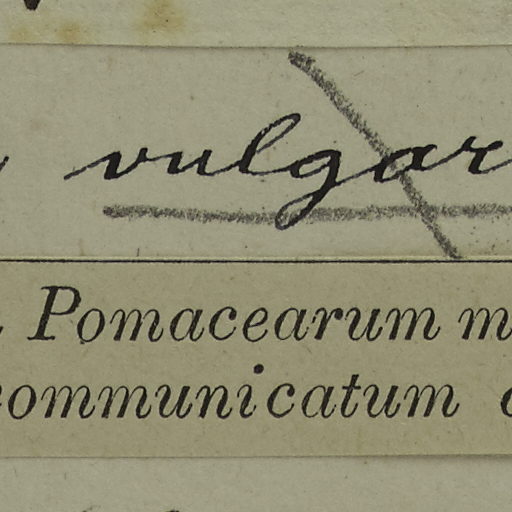 vulgar
Pomacearum m
communicatum